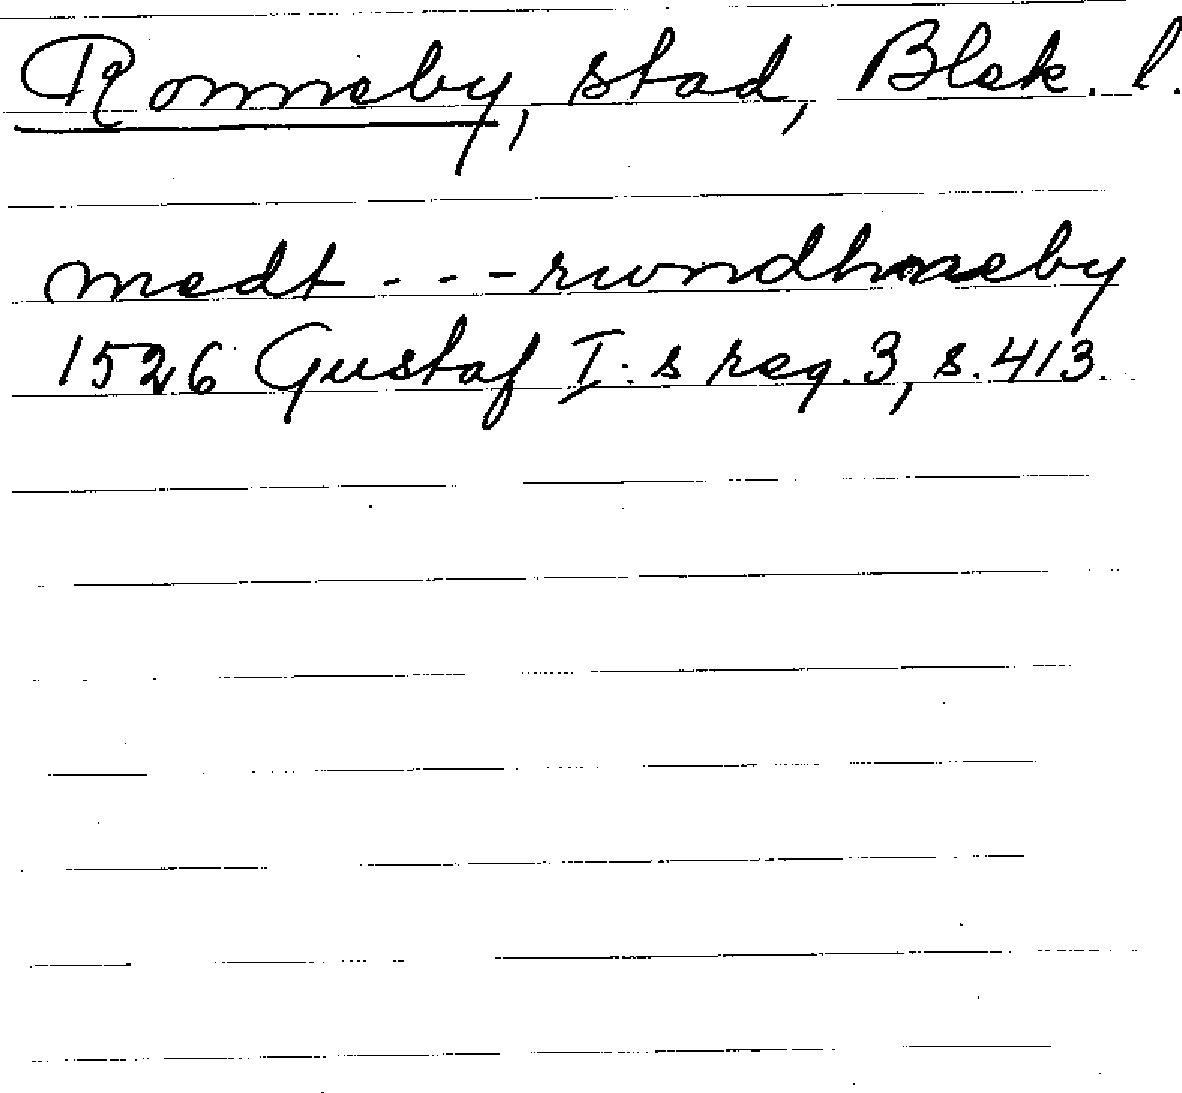 Ronneby, stad, Blek. l.
medt - - - rwndhneby
1526 Gustaf I:s reg. 3, s. 413.